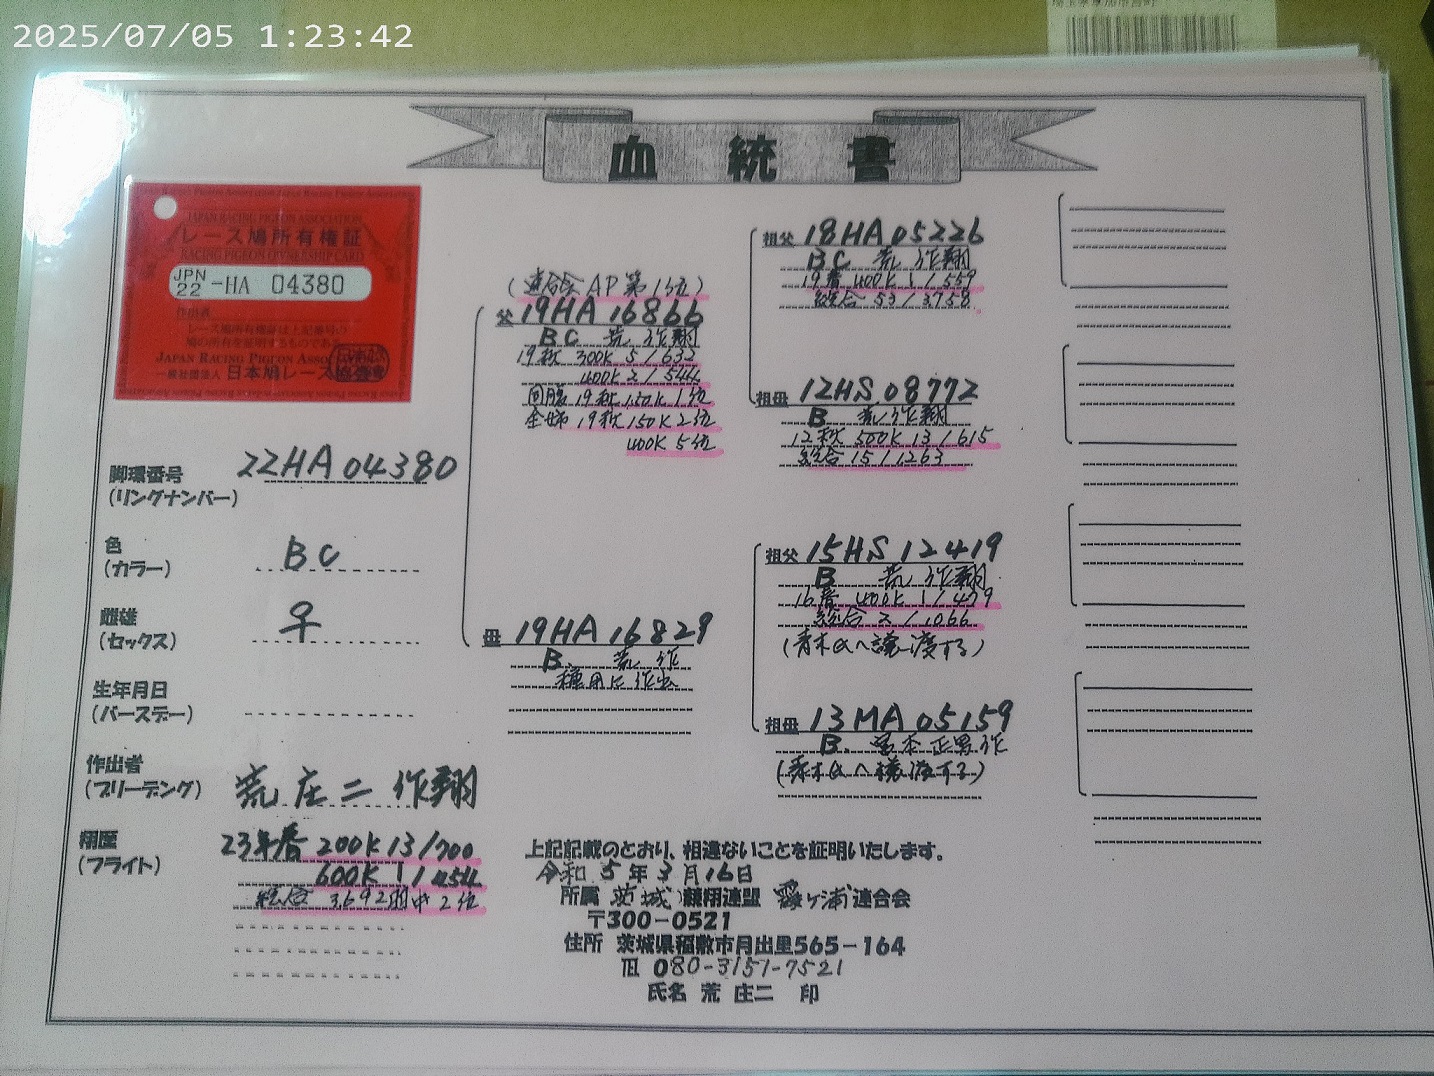 2025/07/05 1:23:42
血統書
JAPAN RACING PIGEON ASSOCIATION
レース鳩所有権証
RACING PIGEON OWNERSHIP CARD
JPN
22 -HA 04380
作出者
レース鳩所有権証は上記番号の
鳩の所有を証明するものである
JAPAN RACING PIGEON
一般社団法人 日本鳩レース協会
脚環番号
(リングナンバー)
22HA04380
色
(カラー)
BC
雌雄
(セックス)
♀
生年月日
(バースデー)
作出者
(ブリーデング)
荒 庄二 作翔
翔歴
(フライト)
23年春 200K 13/700
600K 1/454
総合 3,692羽中2位
(連合会 AP 第1位)
父 19HA 16866
BC 荒 作翔
19秋 300K 5/632
400K 2/544
同腹 19秋 150K 1位
全姉 19秋 150K 2位
400K 5位
母 19HA 16829
B. 荒 作
種用に作出
祖父 18HA 05226
BC 荒 作翔
19春 400K 1/559
総合 53/3758
祖母 12HS 08772
B 荒 作翔
12秋 500K 13/615
総合 15/1263
祖父 15HS 12419
B 荒 作翔
16春 400K 1/479
総合 2/1066
(青木へ譲渡する)
祖母 13MA 05159
B. 正男 作
上記記載のとおり、相違ないことを証明いたします。
令和 5年3月16日
所属 茨城 競翔連盟 霞ヶ浦連合会
〒300-0521
住所 茨城県稲敷市月出里565-164
℡ 080-3151-7521
氏名 荒 庄二 印